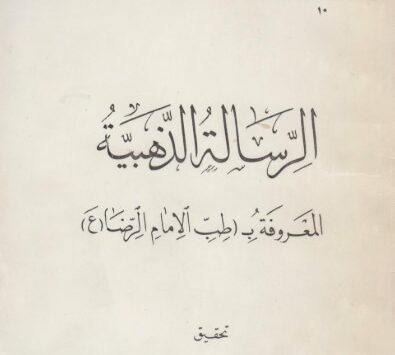 ١٠
الرِّسَالَةُ الذَّهَبِيَّةُ
المَعْرُوفَةُ بِـ (طِبِّ الإِمَامِ الرِّضَا (ع)
تحقيق